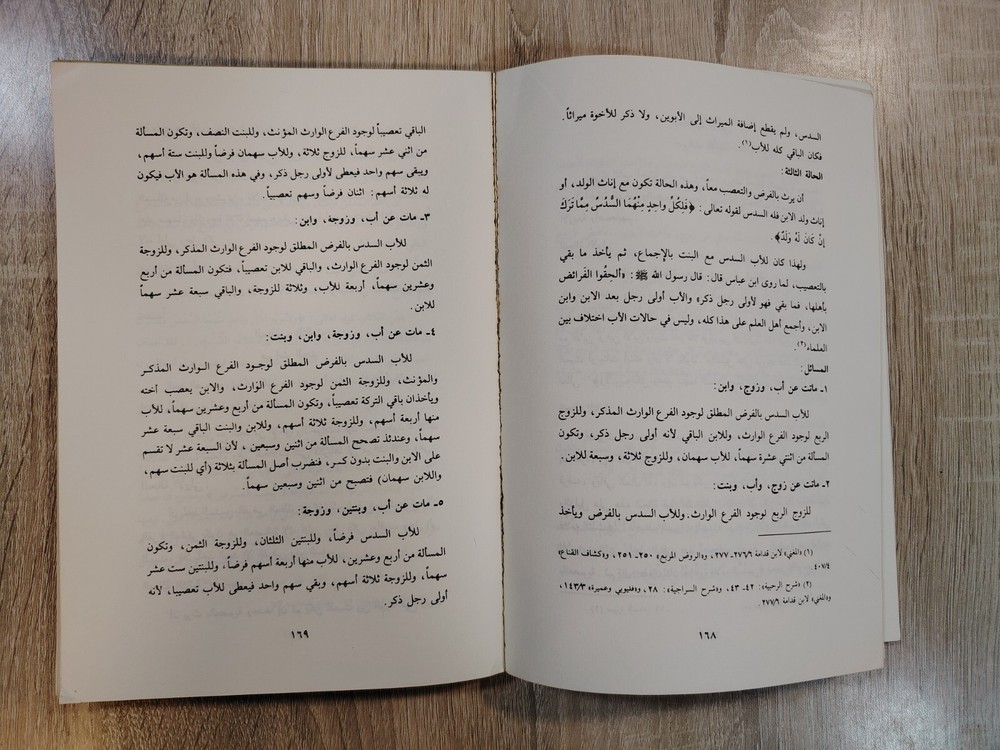 السدس، ولم يقطع إضافة الميراث إلى الأبوين، ولا ذكر للأخوة ميراثاً.
فكان الباقي كله للأب(١).
الحالة الثالثة:
أن يرث بالفرض والتعصب معاً، وهذه الحالة تكون مع إناث الولد، أو
إناث ولد الابن فله السدس لقوله تعالى: ﴿فَلِكُلِّ واحِدٍ مِنْهُمَا السُّدُسُ مِمَّا تَرَكَ
إنْ كَانَ لَهُ وَلَدٌ﴾.
ولهذا كان للأب السدس مع البنت بالإجماع، ثم يأخذ ما بقي
بالتعصيب، لما روى ابن عباس قال: قال رسول الله ﷺ: «ألحِقُوا الفَرائض
بأهلها، فما بقي فهو لأولى رجل ذكر» والأب أولى رجل بعد الابن وابن
الابن، وأجمع أهل العلم على هذا كله، وليس في حالات الأب اختلاف بين
العلماء(٢).
المسائل:
١ـ ماتت عن أب، وزوج، وابن:
للأب السدس بالفرض المطلق لوجود الفرع الوارث المذكر، وللزوج
الربع لوجود الفرع الوارث، وللابن الباقي لأنه أولى رجل ذكر، وتكون
المسألة من اثنتي عشرة سهماً، للأب سهمان، وللزوج ثلاثة، وسبعة للابن.
٢ـ ماتت عن زوج، وأب، وبنت:
للزوج الربع لوجود الفرع الوارث. وللأب السدس بالفرض ويأخذ
(١) «المغني» لابن قدامة ٢٧٦/٦ـ ٢٧٧، و«الروض المربع» ٢٥٠ـ ٢٥١، و«كشاف القناع»
٤٠٧/٤
(٢) «شرح الرحبية»: ٤٢ـ ٤٣، و«شرح السراجية»: ٢٨، و«قليوبي وعميرة» ١٤٣/٣،
و«المغني» لابن قدامة ٢٧٧/٦.
١٦٨
الباقي تعصيباً لوجود الفرع الوارث المؤنث، وللبنت النصف، وتكون المسألة
من اثني عشر سهماً، للزوج ثلاثة، وللأب سهمان فرضاً وللبنت ستة أسهم،
ويبقى سهم واحد فيعطى لأولى رجل ذكر، وفي هذه المسألة هو الأب فيكون
له ثلاثة أسهم: اثنان فرضاً وسهم تعصيباً.
٣ـ مات عن أب، وزوجة، وابن:
للأب السدس بالفرض المطلق لوجود الفرع الوارث المذكر، وللزوجة
الثمن لوجود الفرع الوارث، والباقي للابن تعصيباً، فتكون المسألة من أربع
وعشرين سهماً، أربعة للأب، وثلاثة للزوجة، والباقي سبعة عشر سهماً
للابن.
٤ـ مات عن أب، وزوجة، وابن، وبنت:
للأب السدس بالفرض المطلق لوجود الفرع الوارث المذكر
والمؤنث، وللزوجة الثمن لوجود الفرع الوارث، والابن يعصب أخته
ويأخذان باقي التركة تعصيباً، وتكون المسألة من أربع وعشرين سهماً، للأب
منها أربعة أسهم، وللزوجة ثلاثة أسهم، وللابن والبنت الباقي سبعة عشر
سهماً، وعندئذ تصحح المسألة من اثنين وسبعين، لأن السبعة عشر لا تقسم
على الابن والبنت بدون كسر، فنضرب أصل المسألة بثلاثة (أي للبنت سهم،
وللابن سهمان) فتصبح من اثنين وسبعين سهماً.
٥ـ مات عن أب، وبنتين، وزوجة:
للأب السدس فرضاً، وللبنتين الثلثان، وللزوجة الثمن، وتكون
المسألة من أربع وعشرين، للأب منها أربعة أسهم فرضاً، وللبنتين ست عشر
سهماً، وللزوجة ثلاثة أسهم، وبقي سهم واحد فيعطى للأب تعصيبا، لأنه
أولى رجل ذكر.
١٦٩